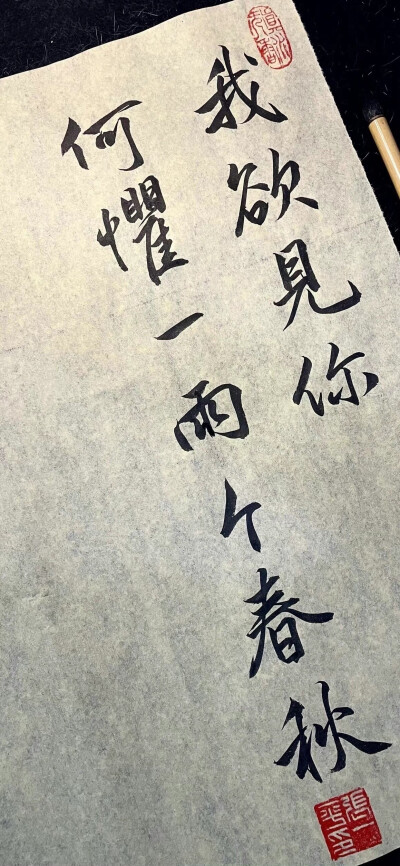 我欲見你
何懼一兩个春秋